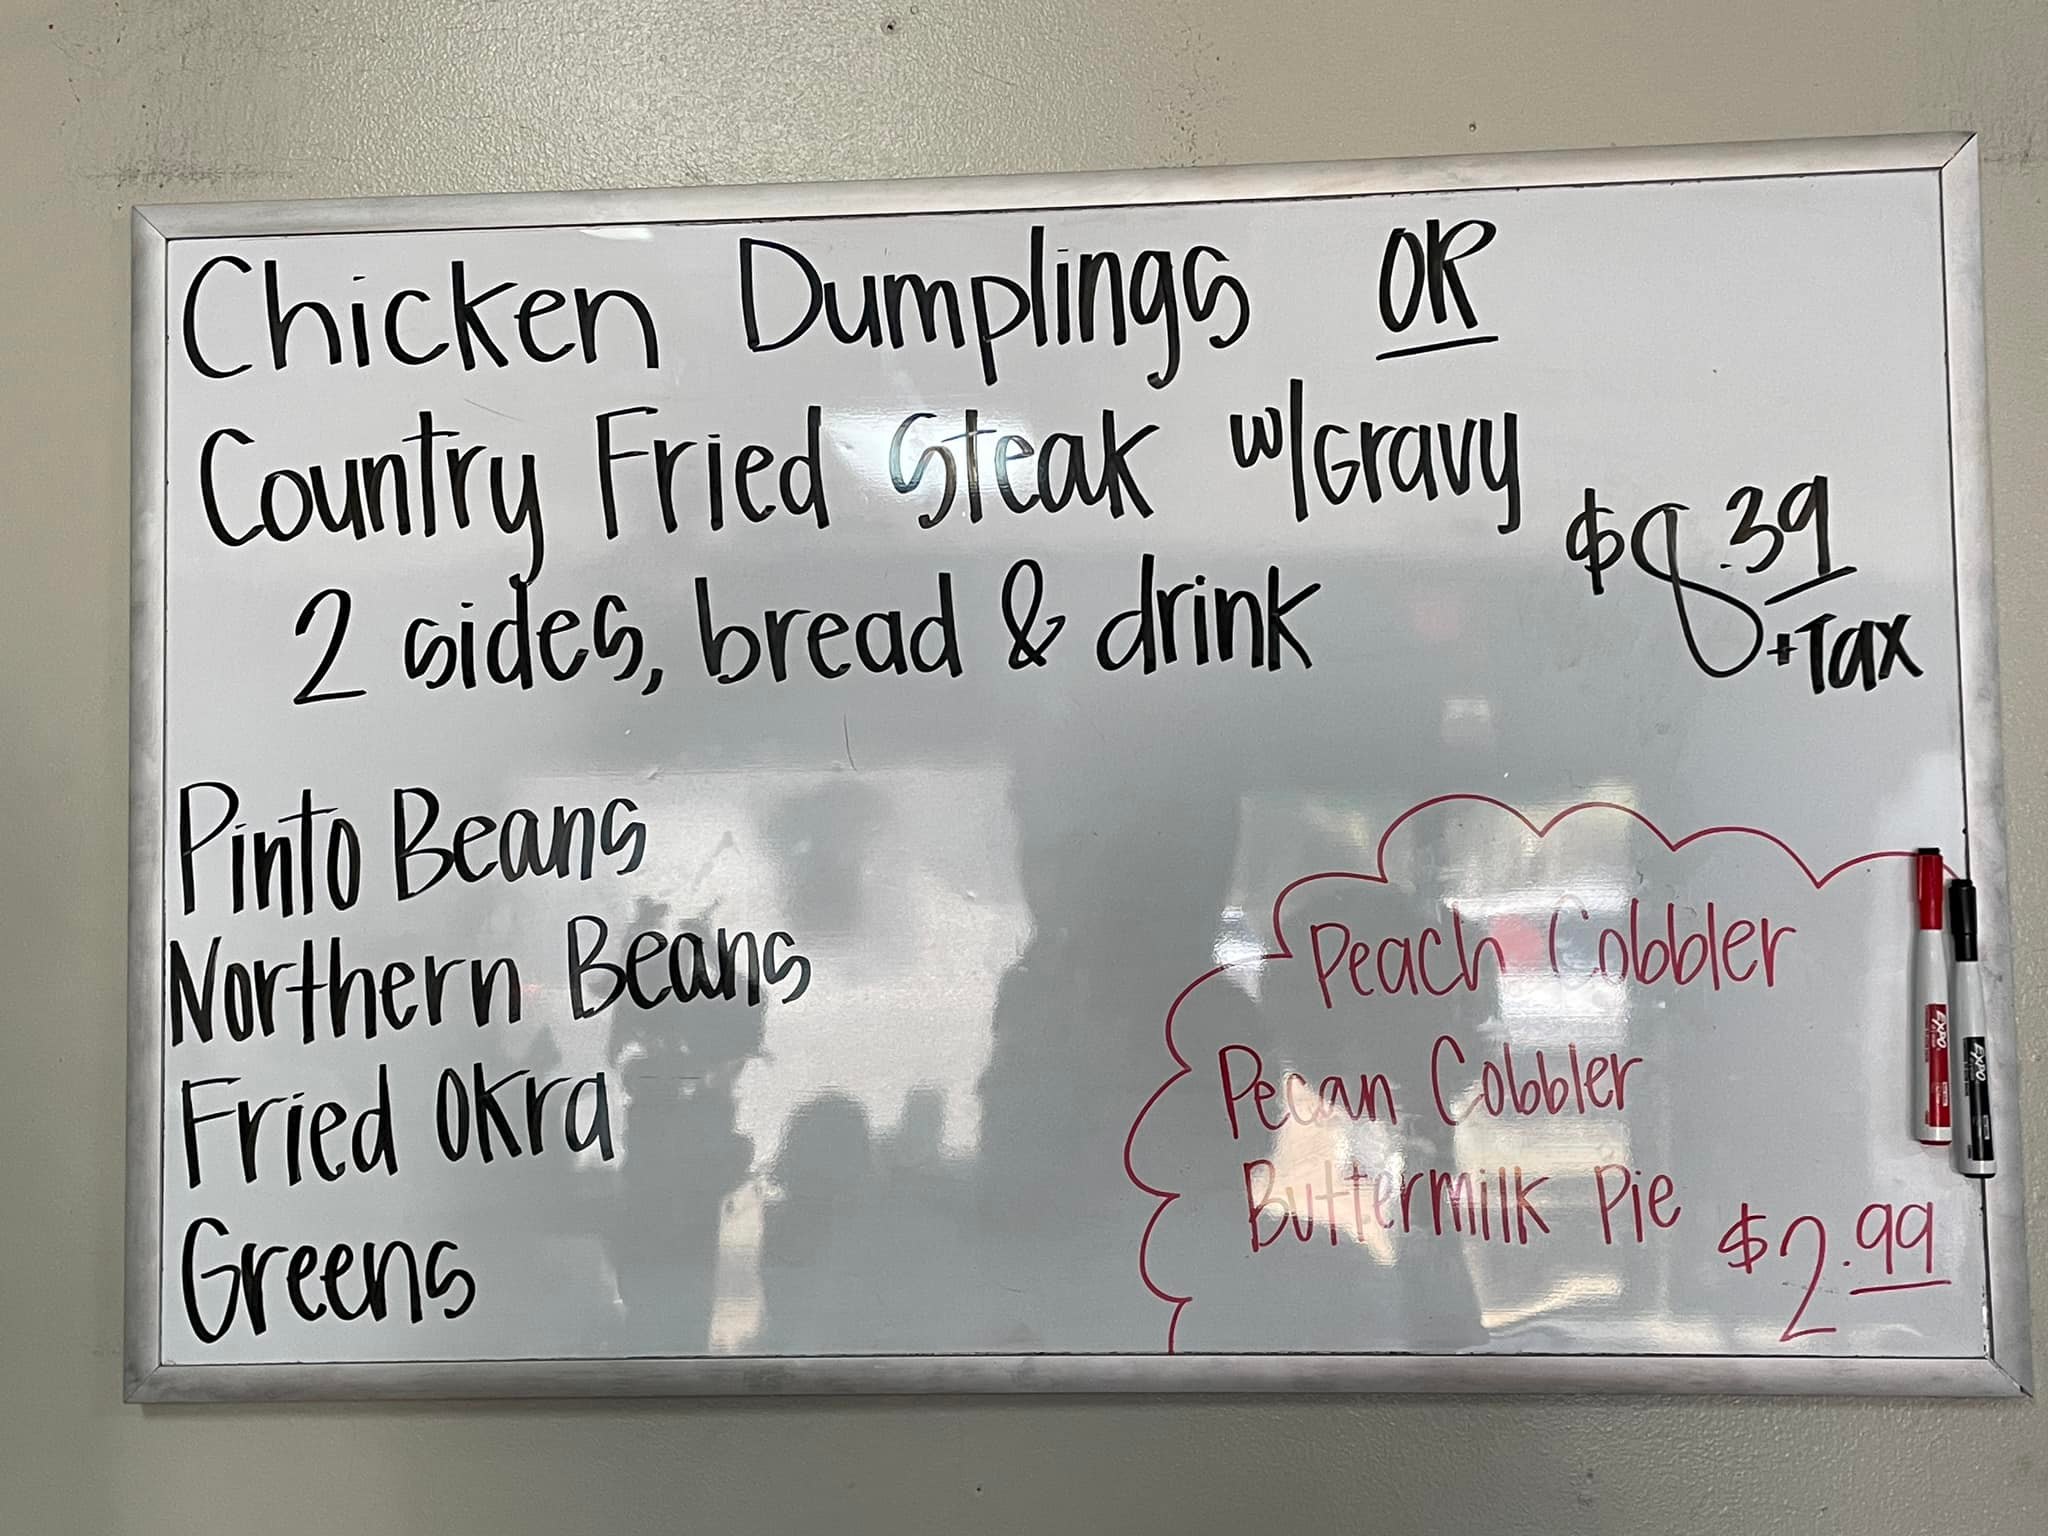 Chicken Dumplings OR
Country Fried Steak w/Gravy
$8.39
+Tax
2 sides, bread & drink
Pinto Beans
Northern Beans
Fried Okra
Greens
Peach Cobbler
Pecan Cobbler
Buttermilk Pie
$2.99
EXPO
EXPO